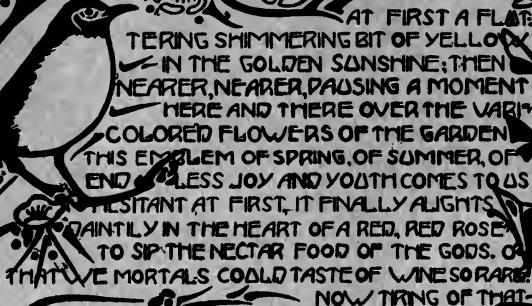 AT FIRST A FLUT
TERING SHIMMERING BIT OF YELLOW
IN THE GOLDEN SUNSHINE; THEN
NEARER, NEARER, PAUSING A MOMENT
HERE AND THERE OVER THE VARI
COLORED FLOWERS OF THE GARDEN
THIS EMBLEM OF SPRING, OF SUMMER, OF
END LESS JOY AND YOUTH COMES TO US
HESITANT AT FIRST, IT FINALLY ALIGHTS
DAINTILY IN THE HEART OF A RED, RED ROSE,
TO SIP THE NECTAR FOOD OF THE GODS. O
THAT WE MORTALS COULD TASTE OF WINE SO RARE
NOW TIRING OF THAT